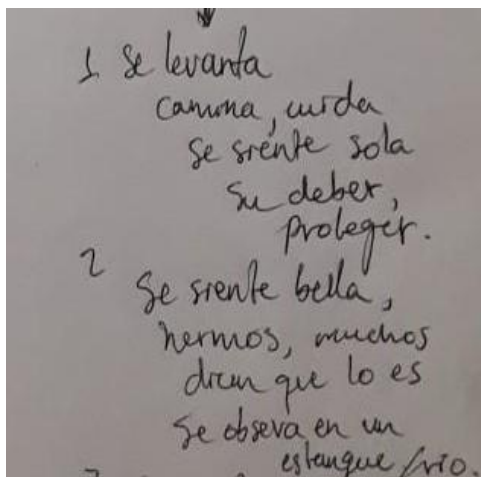 1 Se levanta
camina, cuida
se siente sola
su deber,
proteger.
2 Se siente bella,
hermos, muchos
dicen que lo es
se obseva en un
estanque/río.